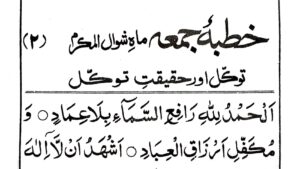 خطبۂ جمعہ ماہِ شوال المکرم (۲)
توکّل اور حقیقتِ توکّل
اَلْحَمْدُ لِلّٰهِ رَافِعِ السَّمَآءِ بِلَاعِمَادٍ ○ وَ
مُكَفِّلِ اَرْزَاقِ الْعِبَادِ ○ اَشْهَدُ اَنْ لَّآ اِلٰهَ